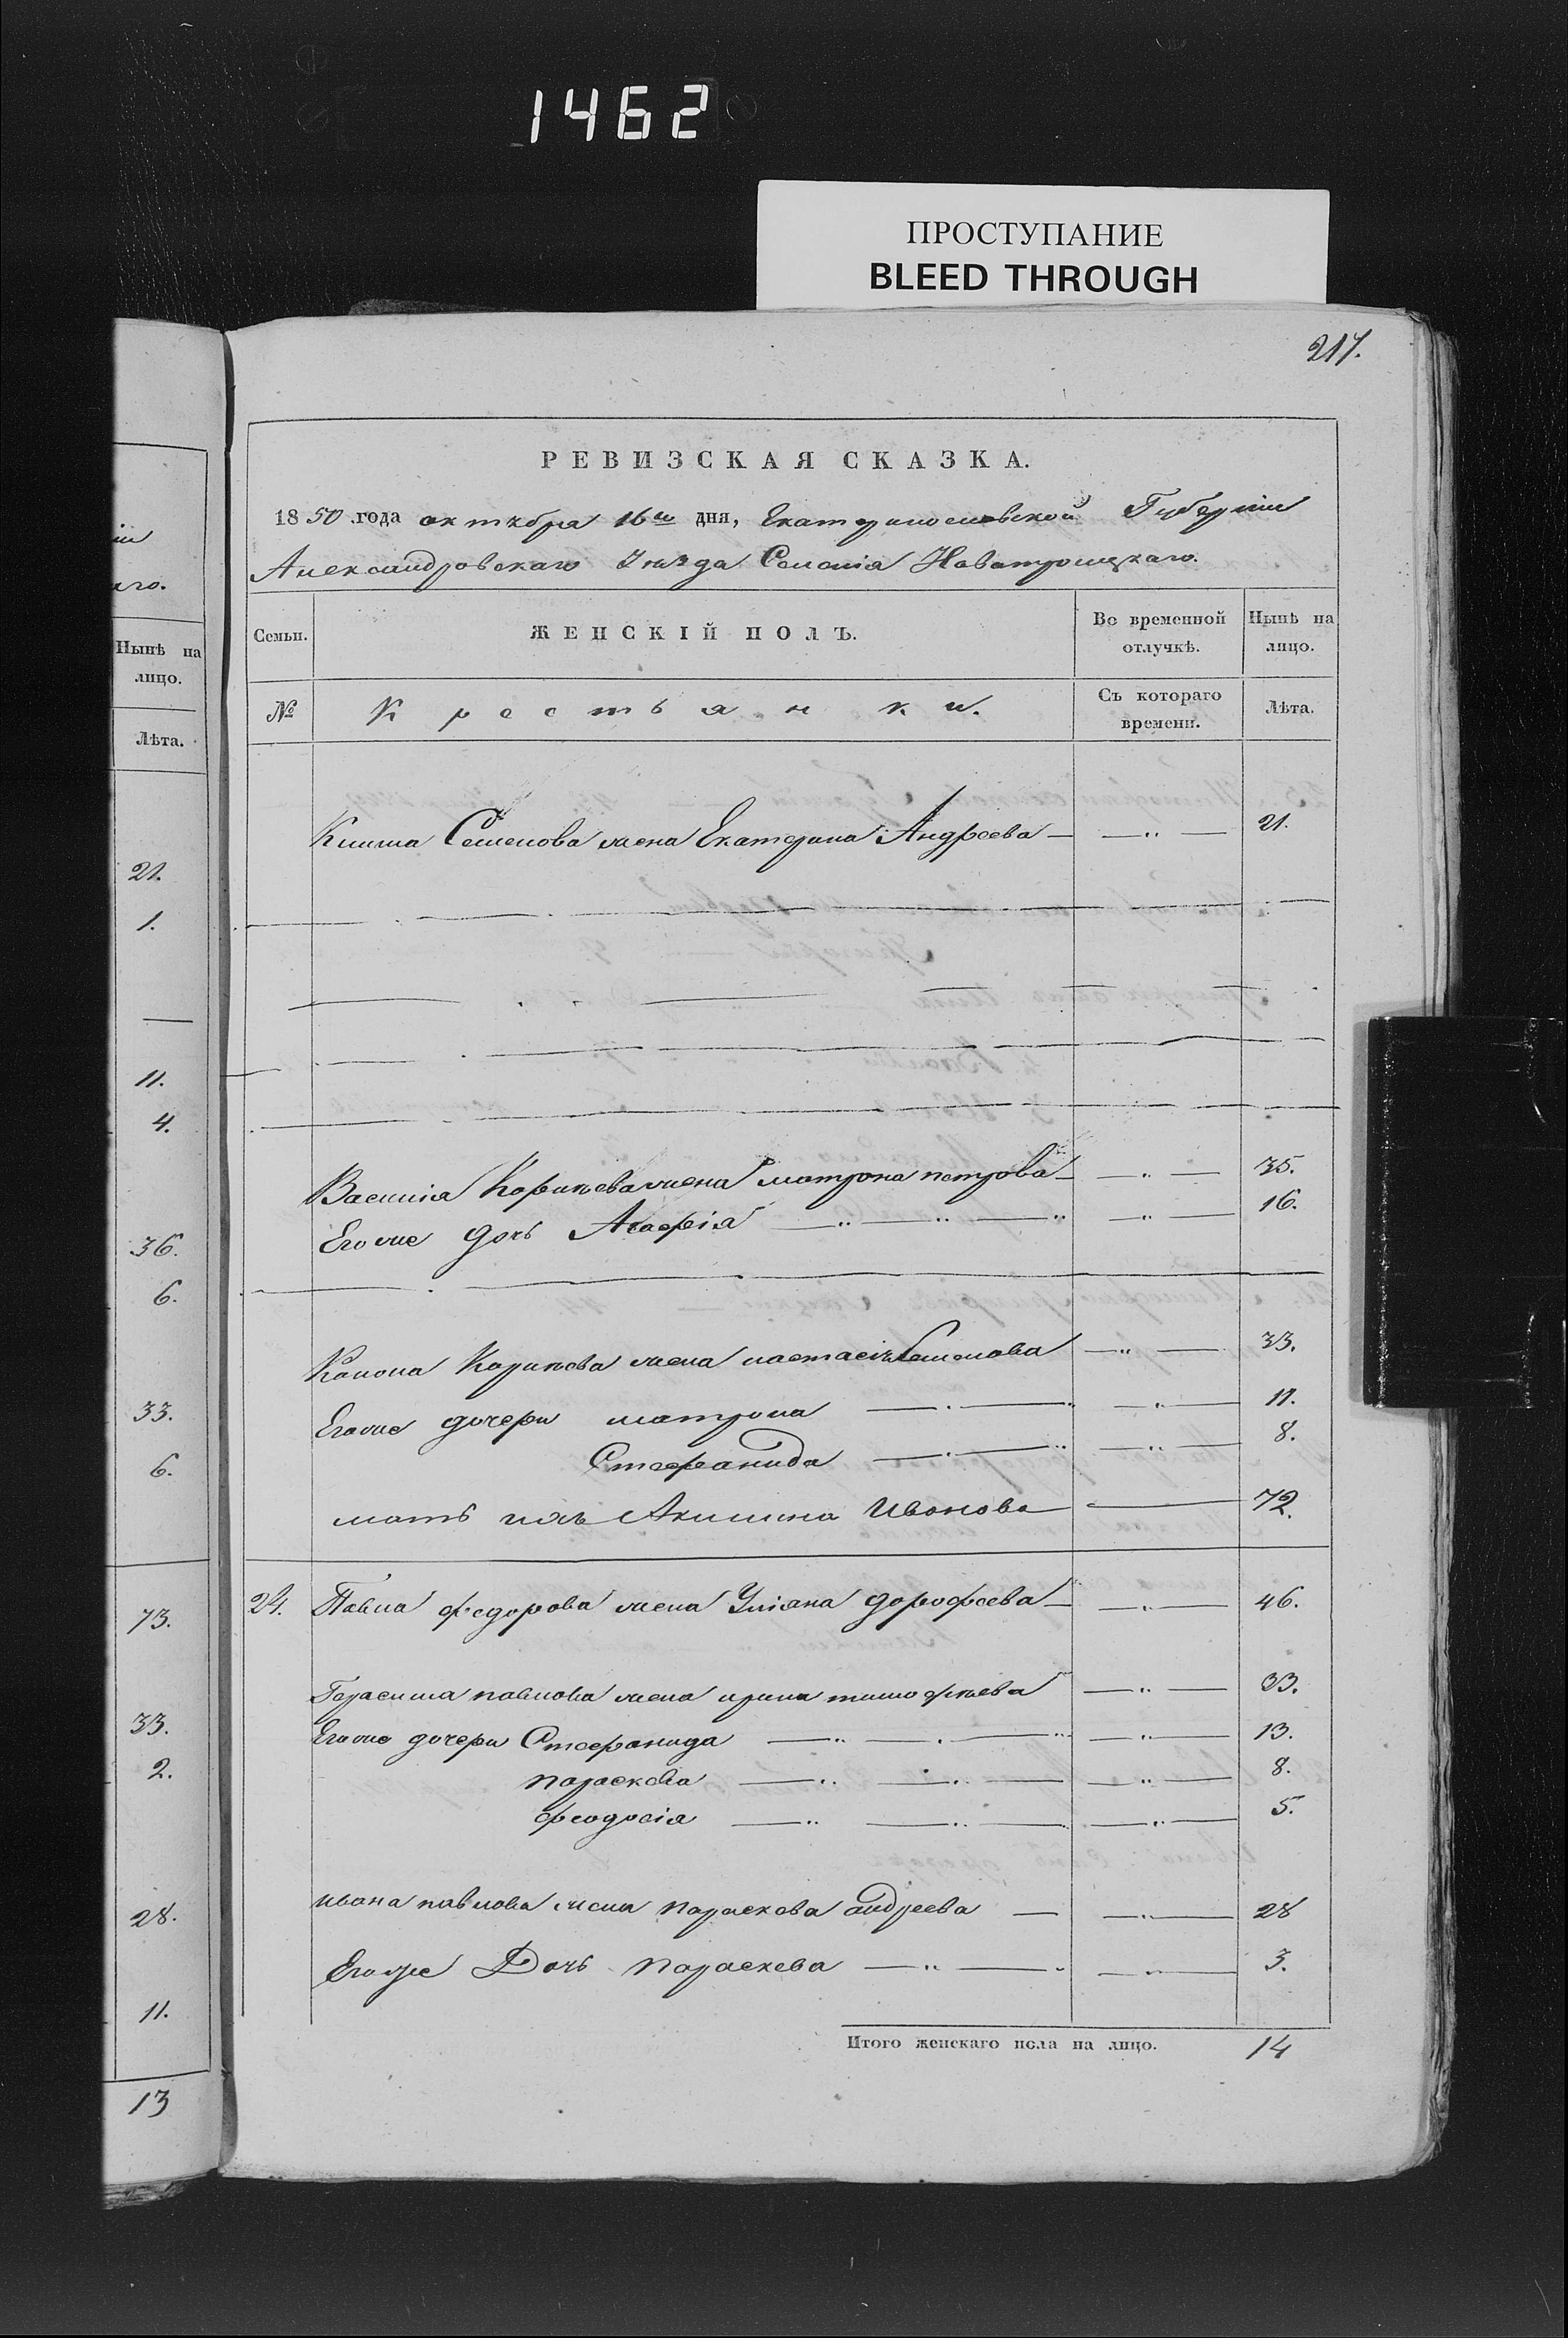 1462
ПРОСТУПАНИЕ
BLEED THROUGH
217.
РЕВИЗСКАЯ СКАЗКА.
1850 года октября 16го дня, Екатеринославской Губерніи
Александровскаго Уѣзда Селенія Новотроицкаго.
Семьи. ЖЕНСКІЙ ПОЛЪ. Во временной отлучкѣ. Нынѣ на лицо.
№ Крестьянки. Съ котораго времени. Лѣта.
Клима Семенова жена Екатерина Андреева — —„— 21.
Василія Корнѣева жена матрона петрова — —„— 35.
Егоже дочь Агафія —„—„—„ —„— 16.
Конона Корнѣева жена настасія Семенова —„— 33.
Егоже дочери матрона —„—„ —„— 11.
Стефанида —„—„ —„— 8.
мать ихъ Акилина Иванова — — 72.
24. Павла федорова жена Уліяна дорофеева — —„— 46.
Герасима павлова жена ирина тимофѣева —„— 33.
Егоже дочери Стефанида —„—„—„ —„— 13.
параскова —„—„— —„— 8.
феодосія —„—„— —„— 5.
ивана павлова жена параскова андреева — —„— 28
Егоже Дочь параскева —„—„ —„— 3.
Итого женскаго пола на лицо. 14
іи
аго.
Нынѣ на
лицо.
Лѣта.
21.
1.
11.
4.
36.
6.
33.
6.
73.
33.
2.
28.
11.
13